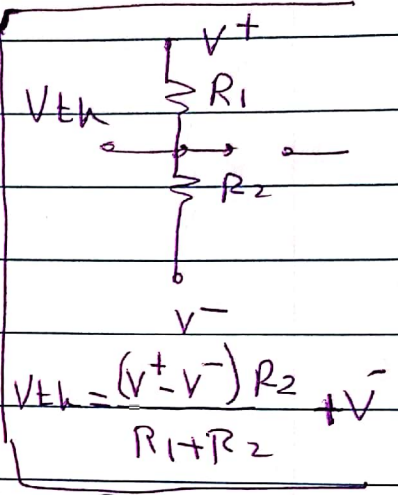 V⁺
R1
Vth
R2
V⁻
Vth = (V⁺-V⁻) R2 / R1+R2 + V⁻